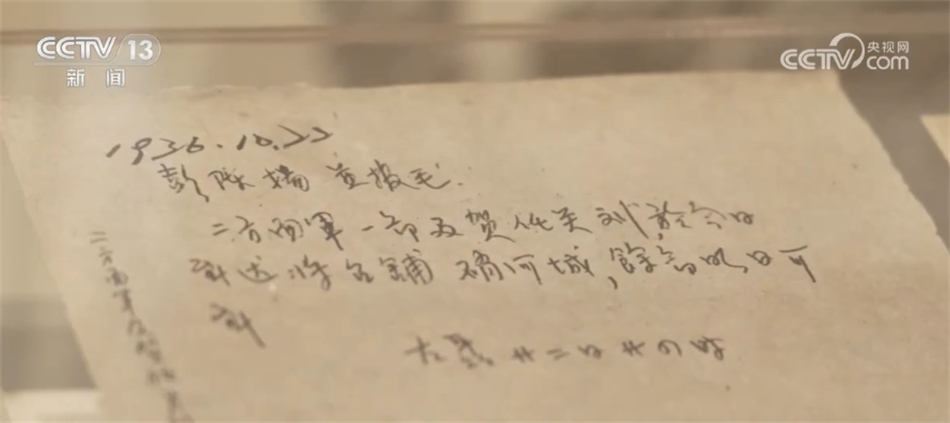 CCTV 13
新闻
央视网
CCTV.com
1936.10.22
彭 陈 杨 并报毛.
二方面军一部及贺任关刘于今日
到达将台铺 硝河城,馀部明日可
到
左 聂 廿二日廿四时
二方面军